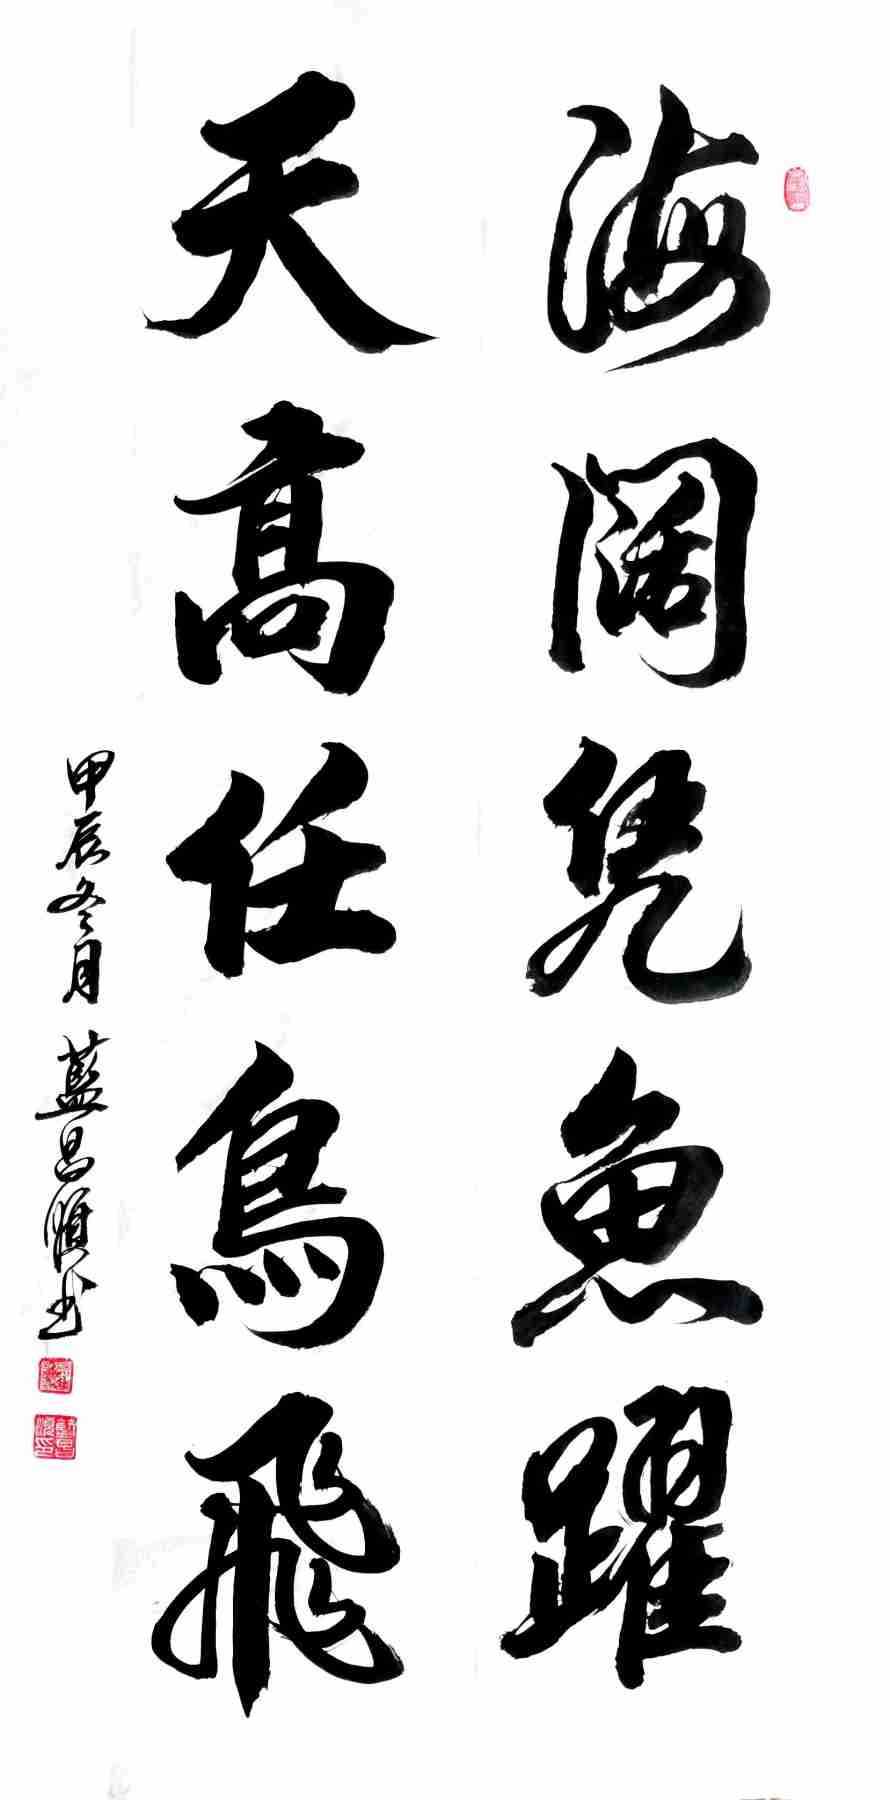 海阔凭魚躍
天高任鳥飛
甲辰冬月 藍昌順书